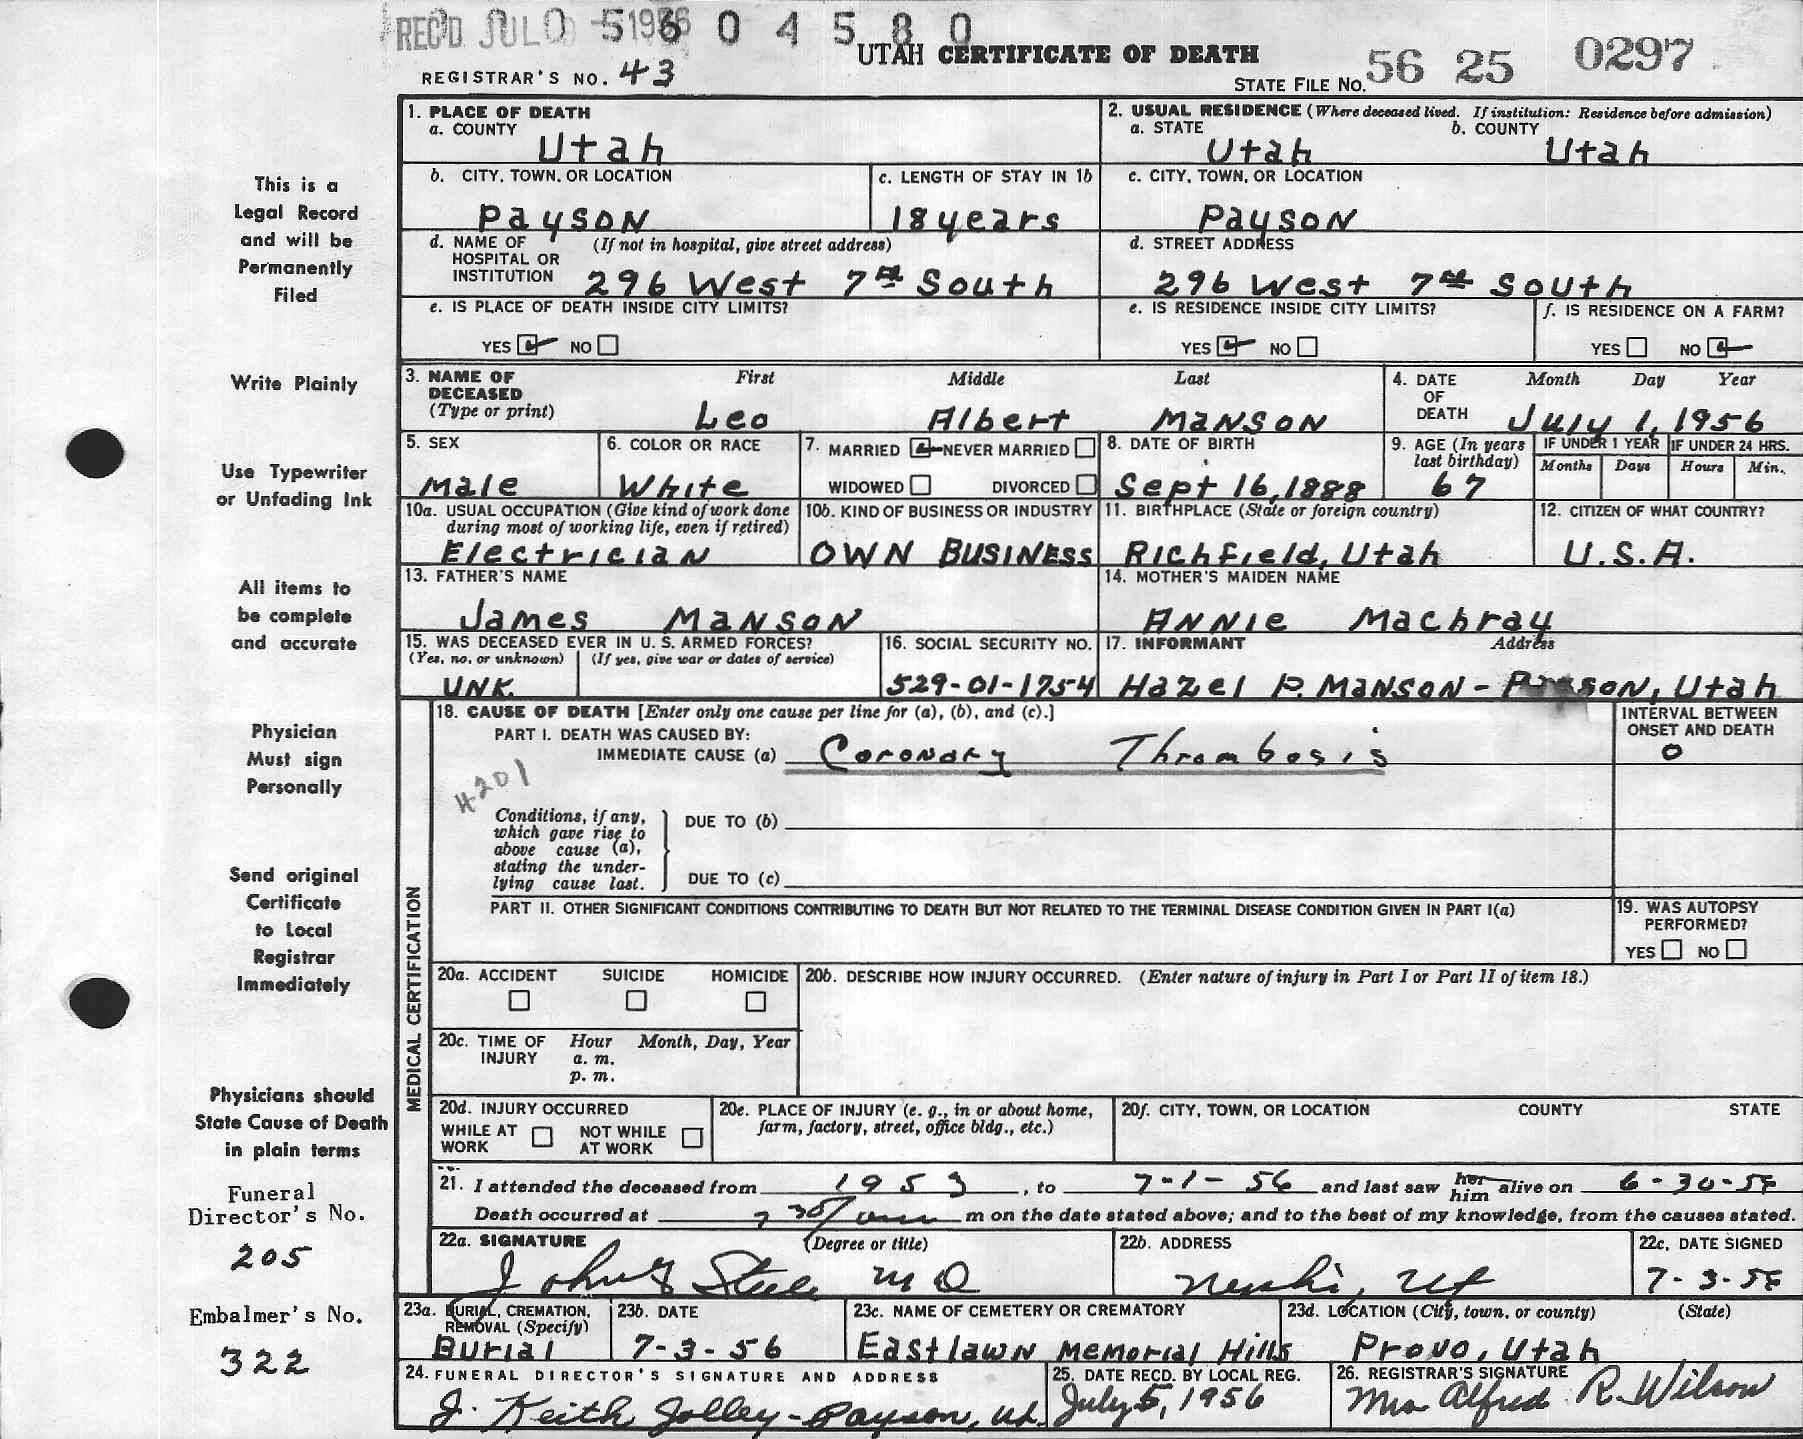 REC'D JUL 0 5 1956 0 4 5 8 0
UTAH CERTIFICATE OF DEATH
REGISTRAR'S NO. 43
STATE FILE NO. 56 25 0297
This is a
Legal Record
and will be
Permanently
Filed
Write Plainly
Use Typewriter
or Unfading Ink
All items to
be complete
and accurate
Physician
Must sign
Personally
Send original
Certificate
to Local
Registrar
Immediately
Physicians should
State Cause of Death
in plain terms
Funeral
Director's No.
205
Embalmer's No.
322
1. PLACE OF DEATH
a. COUNTY
Utah
2. USUAL RESIDENCE (Where deceased lived. If institution: Residence before admission)
a. STATE b. COUNTY
Utah Utah
b. CITY, TOWN, OR LOCATION
Payson
c. LENGTH OF STAY IN 1b
18 years
c. CITY, TOWN, OR LOCATION
Payson
d. NAME OF (If not in hospital, give street address)
HOSPITAL OR
INSTITUTION 296 West 7th South
d. STREET ADDRESS
296 West 7th South
e. IS PLACE OF DEATH INSIDE CITY LIMITS?
YES NO
e. IS RESIDENCE INSIDE CITY LIMITS?
YES NO
f. IS RESIDENCE ON A FARM?
YES NO
3. NAME OF First Middle Last
DECEASED
(Type or print) Leo Albert Manson
4. DATE Month Day Year
OF
DEATH July 1, 1956
5. SEX
Male
6. COLOR OR RACE
White
7. MARRIED NEVER MARRIED
WIDOWED DIVORCED
8. DATE OF BIRTH
Sept 16, 1888
9. AGE (In years
last birthday)
67
IF UNDER 1 YEAR IF UNDER 24 HRS.
Months Days Hours Min.
10a. USUAL OCCUPATION (Give kind of work done
during most of working life, even if retired)
Electrician
10b. KIND OF BUSINESS OR INDUSTRY
OWN BUSINESS
11. BIRTHPLACE (State or foreign country)
Richfield, Utah
12. CITIZEN OF WHAT COUNTRY?
U.S.A.
13. FATHER'S NAME
James Manson
14. MOTHER'S MAIDEN NAME
Annie Machray
15. WAS DECEASED EVER IN U. S. ARMED FORCES?
(Yes, no, or unknown) (If yes, give war or dates of service)
UNK.
16. SOCIAL SECURITY NO.
529-01-1754
17. INFORMANT Address
Hazel P. Manson - Payson, Utah
MEDICAL CERTIFICATION
18. CAUSE OF DEATH [Enter only one cause per line for (a), (b), and (c).]
PART I. DEATH WAS CAUSED BY:
IMMEDIATE CAUSE (a) Coronary Thrombosis
INTERVAL BETWEEN
ONSET AND DEATH
0
4201
Conditions, if any,
which gave rise to
above cause (a),
stating the under-
lying cause last.
DUE TO (b)
DUE TO (c)
PART II. OTHER SIGNIFICANT CONDITIONS CONTRIBUTING TO DEATH BUT NOT RELATED TO THE TERMINAL DISEASE CONDITION GIVEN IN PART I(a)
19. WAS AUTOPSY
PERFORMED?
YES NO
20a. ACCIDENT SUICIDE HOMICIDE
20b. DESCRIBE HOW INJURY OCCURRED. (Enter nature of injury in Part I or Part II of item 18.)
20c. TIME OF Hour Month, Day, Year
INJURY a. m.
p. m.
20d. INJURY OCCURRED
WHILE AT NOT WHILE
WORK AT WORK
20e. PLACE OF INJURY (e. g., in or about home,
farm, factory, street, office bldg., etc.)
20f. CITY, TOWN, OR LOCATION COUNTY STATE
21. I attended the deceased from 1953, to 7-1-56 and last saw her him alive on 6-30-56
Death occurred at 7 30/am m on the date stated above; and to the best of my knowledge, from the causes stated.
22a. SIGNATURE (Degree or title)
John Steele MD
22b. ADDRESS
Nephi, Ut
22c. DATE SIGNED
7-3-56
23a. BURIAL, CREMATION,
REMOVAL (Specify)
Burial
23b. DATE
7-3-56
23c. NAME OF CEMETERY OR CREMATORY
Eastlawn Memorial Hills
23d. LOCATION (City, town, or county) (State)
Provo, Utah
24. FUNERAL DIRECTOR'S SIGNATURE AND ADDRESS
J. Keith Jolley - Payson, Ut.
25. DATE RECD. BY LOCAL REG.
July 5, 1956
26. REGISTRAR'S SIGNATURE
Mrs Alfred R. Wilson